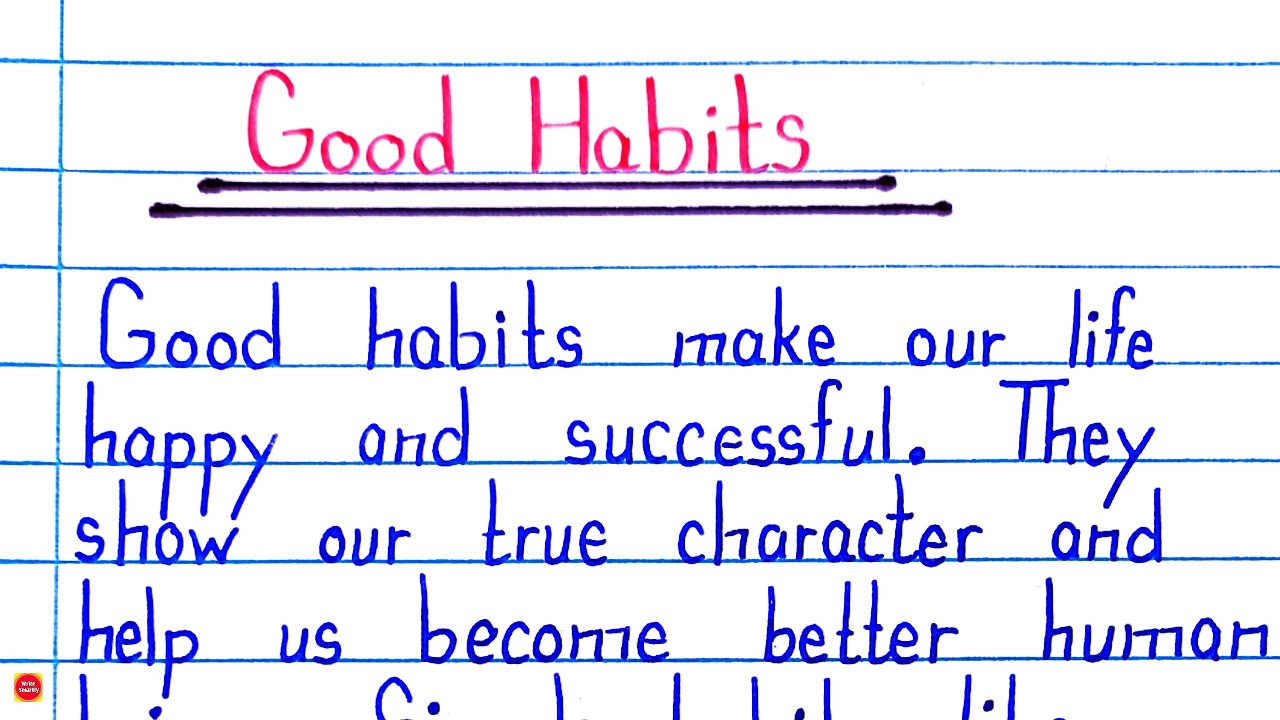 Good Habits
Good habits make our life
happy and successful. They
show our true character and
help us become better human
Write
Smartly